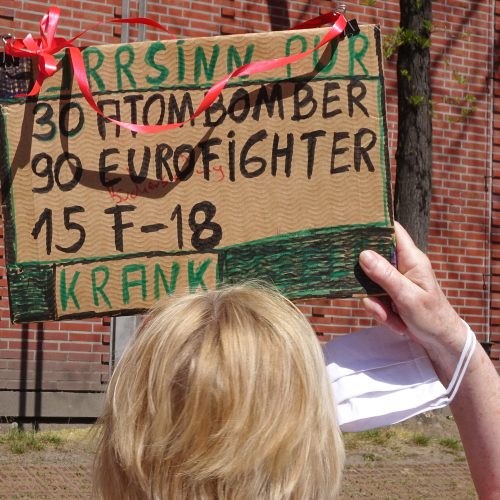 IRRSINN PUR
30 ATOMBOMBER
90 EUROFIGHTER
15 F-18
KRANK